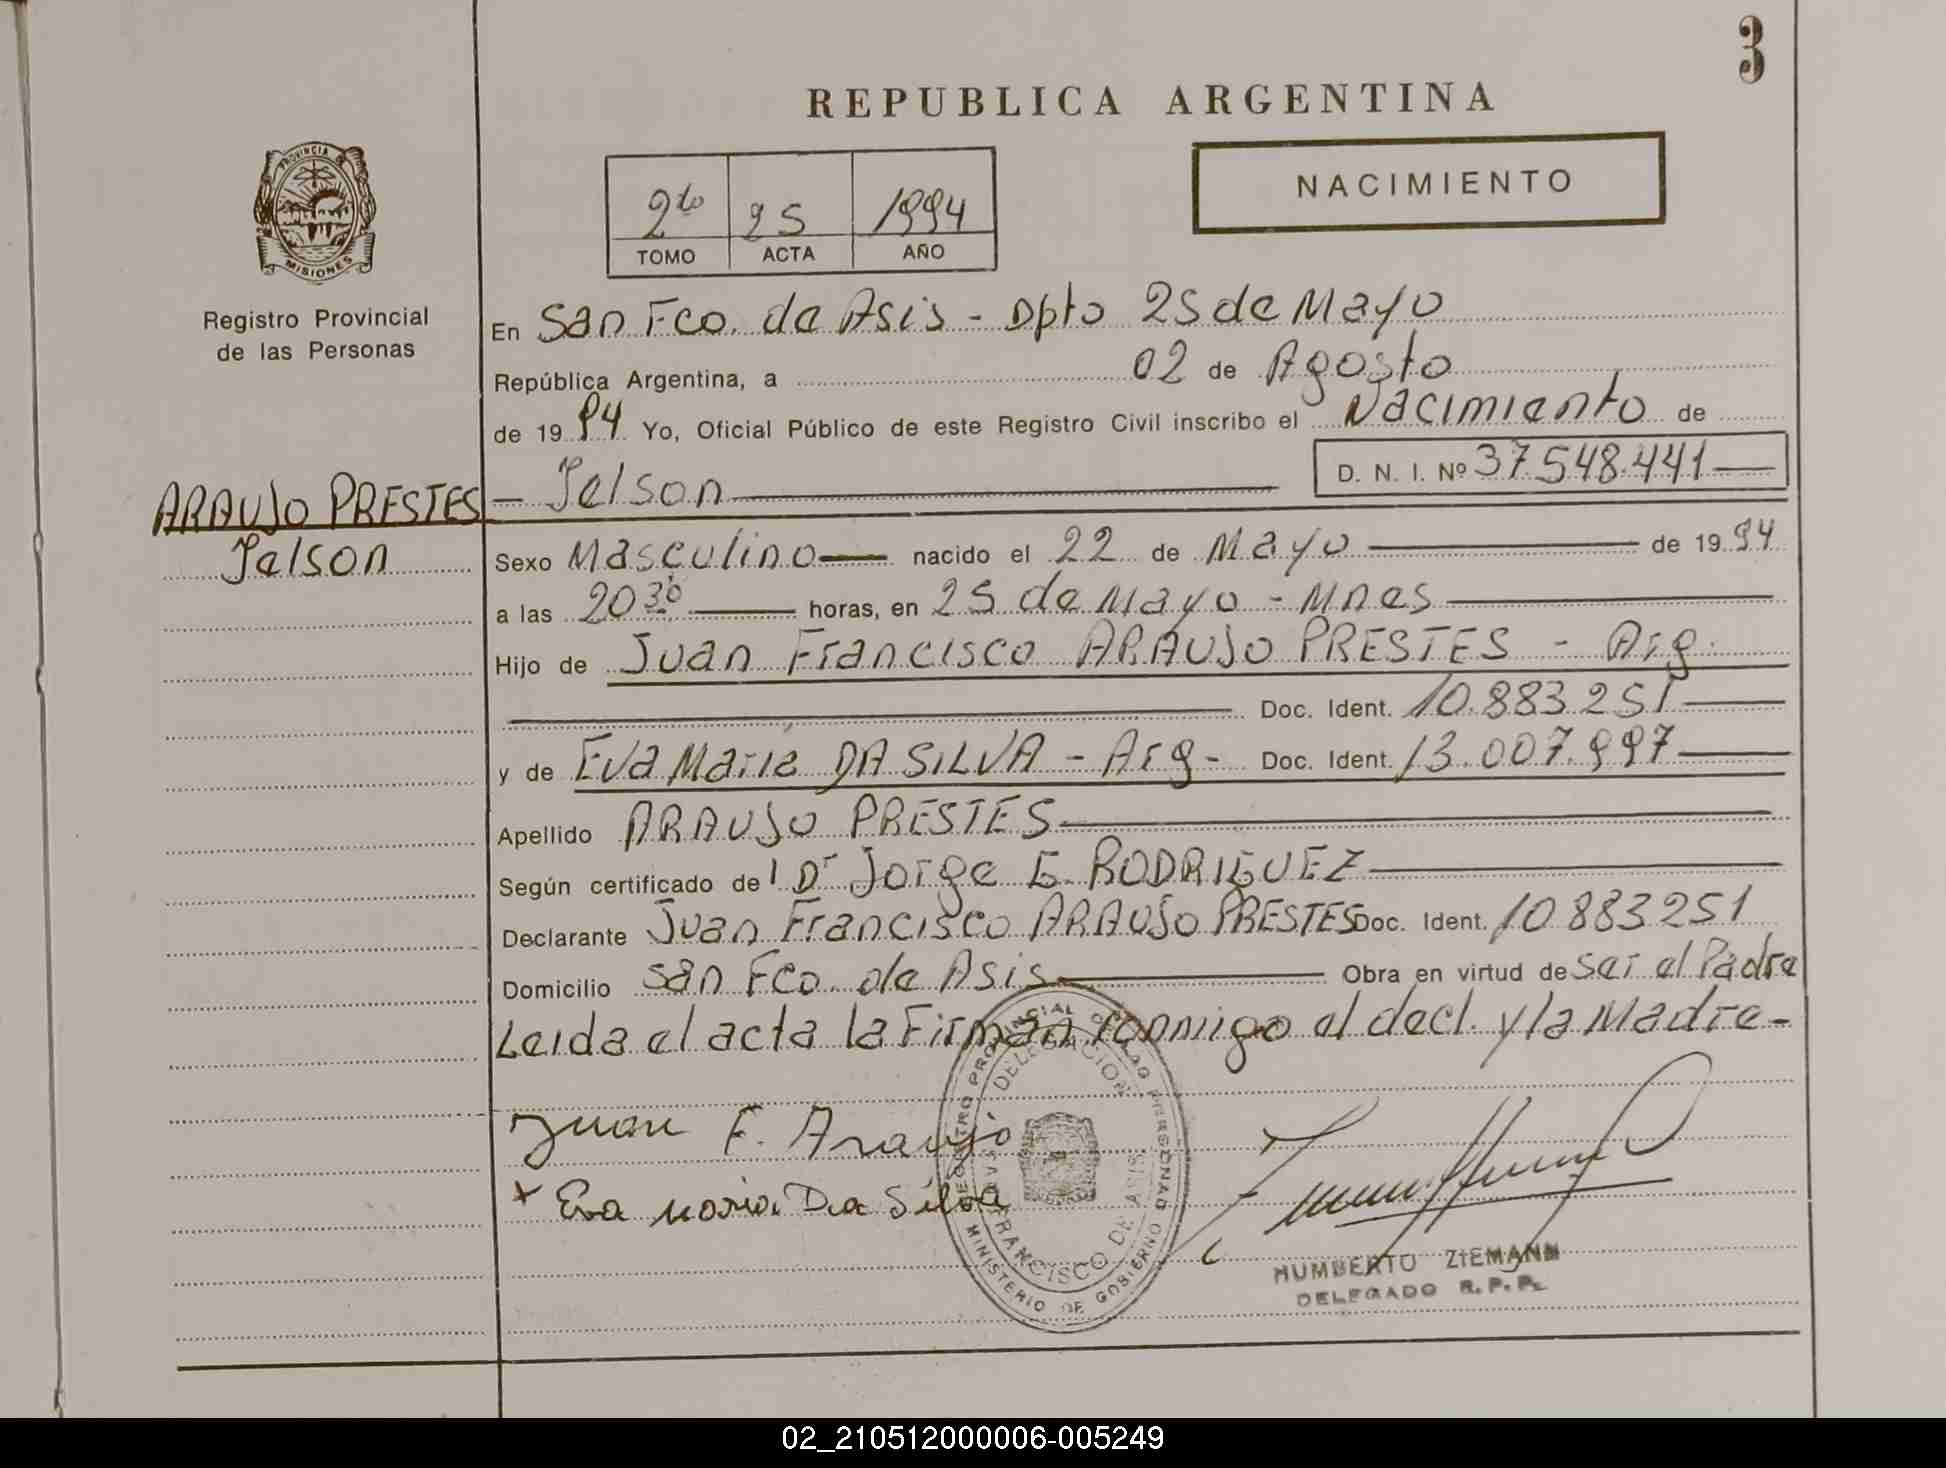 3
REPUBLICA ARGENTINA
NACIMIENTO
2to 25 1994
TOMO ACTA AÑO
PROVINCIA DE
MISIONES
Registro Provincial
de las Personas
En San Fco. de Asis - Dpto 25 de Mayo
República Argentina, a 02 de Agosto
de 1994 Yo, Oficial Público de este Registro Civil inscribo el Nacimiento de
- Jelson D. N. I. Nº 37.548.441
ARAUJO PRESTES
Jelson
Sexo Masculino nacido el 22 de Mayo de 1994
a las 20 30 horas, en 25 de Mayo - Mnes
Hijo de Juan Francisco ARAUJO PRESTES - Arg.
Doc. Ident. 10.883.251
y de Eva Maria DA SILVA - Arg - Doc. Ident. 13.007.997
Apellido ARAUJO PRESTES
Según certificado del Dr Jorge E. RODRIGUEZ
Declarante Juan Francisco ARAUJO PRESTES Doc. Ident. 10.883.251
Domicilio San Fco. de Asis Obra en virtud de ser el Padre
Leida el acta la Firman conmigo el decl. y la Madre-
Juan F. Araujo
x Eva Maria Da Silva
REGISTRO PROVINCIAL DE LAS PERSONAS
DELEGACION
FRANCISCO DE ASIS
MINISTERIO DE GOBIERNO
HUMBERTO ZIEMANN
DELEGADO R. P. P.
02_210512000006-005249